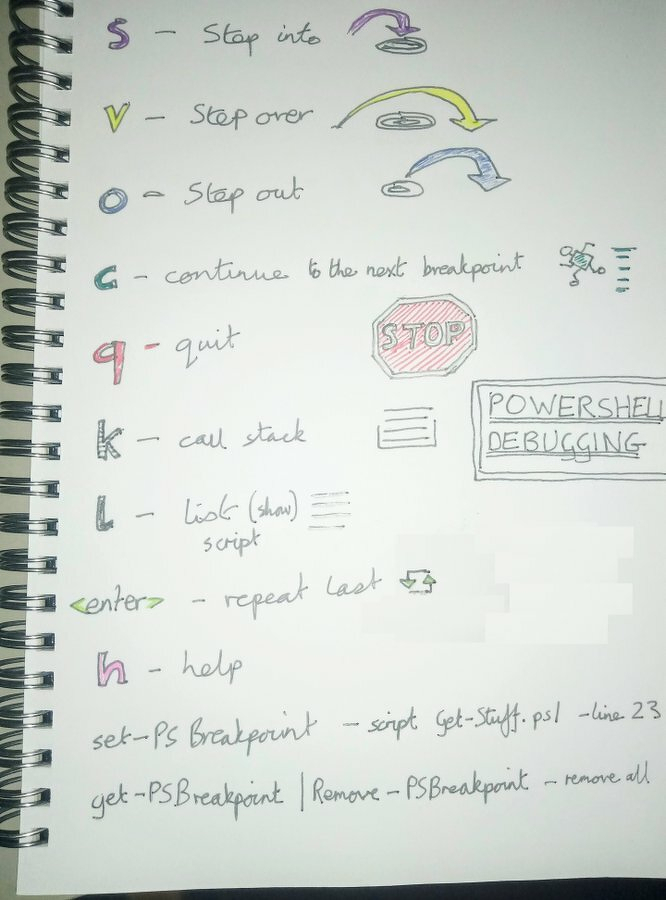 s - Step into
v - Step over
o - Step out
c - continue to the next breakpoint
q - quit
STOP
k - call stack
POWERSHELL
DEBUGGING
L - list (show)
script
<enter> - repeat last
h - help
set-PSBreakpoint - script Get-Stuff.ps1 -line 23
get-PSBreakpoint | Remove-PSBreakpoint - remove all